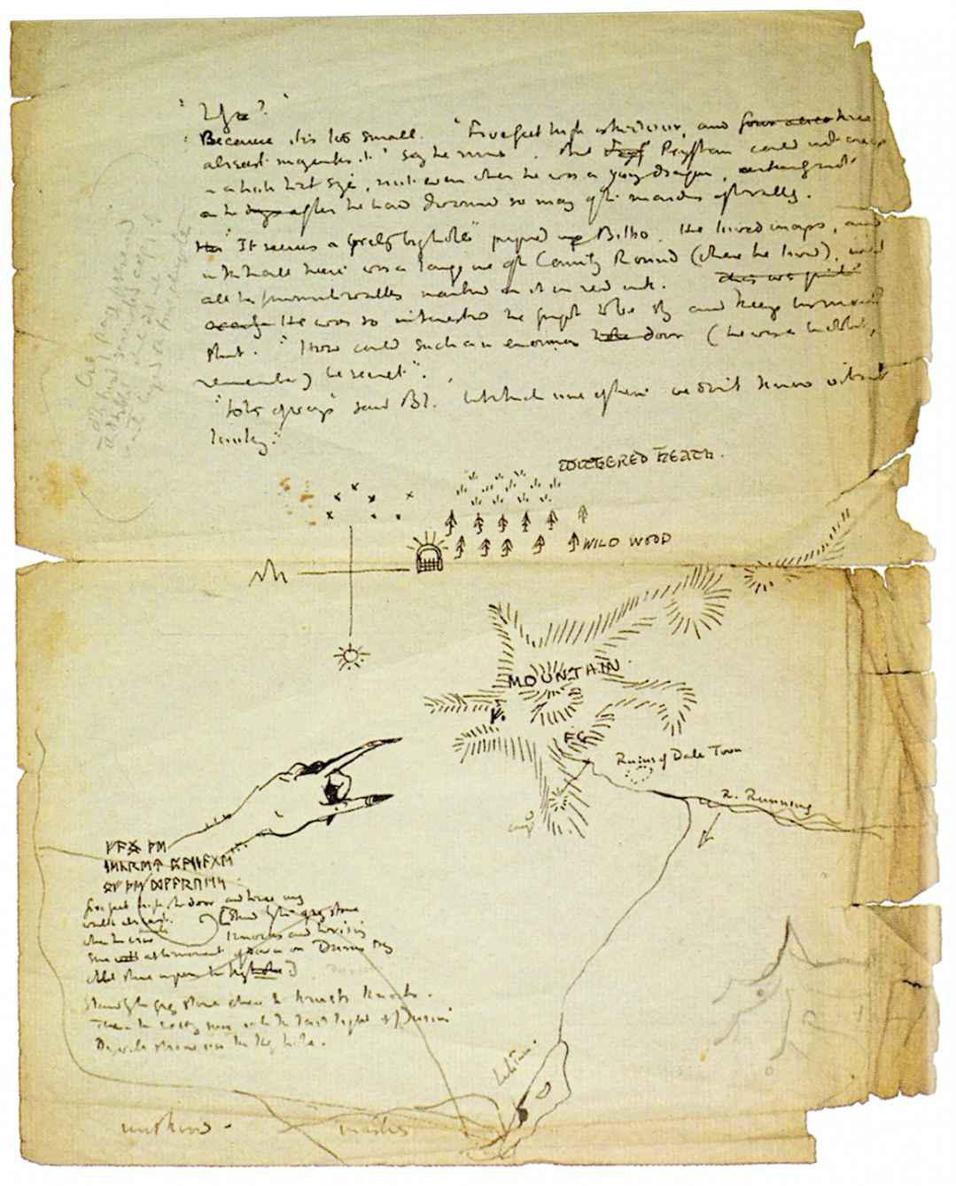 "Why?"
Because it is too small. "Five feet high is the door, and three
abreast may enter it" say the runes. But Pryftan could not creep
in a hole that size, not even when he was a young dragon, certainly not
after he had devoured so many of the maidens of the valley.
"It seems a pretty big hole" piped up Bilbo. He loved maps, and
in the hall there was a large one of the County Round (where he lived), with
all his favourite walks marked on it in red ink.
He was so interested he forgot to be shy and keep his mouth
shut. "How could such an enormous door (he was a hobbit,
remember) be secret".
"Lots of ways" said Bl. "but which one of them we don't know without
looking."
WITHERED HEATH.
WILD WOOD
MOUNTAIN.
F.G.
Ruins of Dale Town
R. Running
ᚠᚨᛝ ᚦᛖ
ᛋᛖᚳᚱᛖᛏ ᛈᚨᛋᛋᚨᚷᛖ
ᛟᚠ ᚦᛖ ᛞᚹᚨᚱᚢᛖᛋ
five feet high the door and three may
walk abreast. Stand by the grey stone
when the crow knocks and the rising
sun at the moment of dawn on Durin's Day
will shine upon the keyhole
Stand by the grey stone when the thrush knocks.
Then the setting sun with the last light of Durin's
Day will shine on the key hole.
marshes